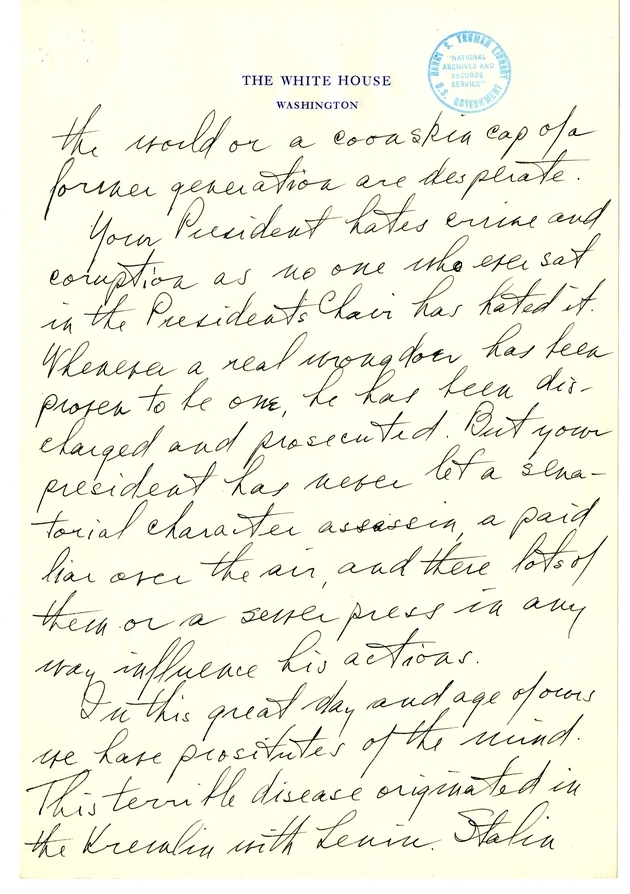 HARRY S. TRUMAN LIBRARY
"NATIONAL
ARCHIVES AND
RECORDS
SERVICE"
U.S. GOVERNMENT
THE WHITE HOUSE
WASHINGTON
the world or a coonskin cap of a
former generation are desperate.
Your President hates crime and
coruption as no one who ever sat
in the Presidents Chair has hated it.
Whenever a real wrongdoer has been
proven to be one, he has been dis-
charged and prosecuted. But your
president has never let a sena-
torial character assassin, a paid
liar over the air, and there lots of
them or a sewer press in any
way influence his actions.
In this great day and age of ours
we have prositutes of the mind.
This terrible disease originated in
the Kremlin with Lenin. Stalin